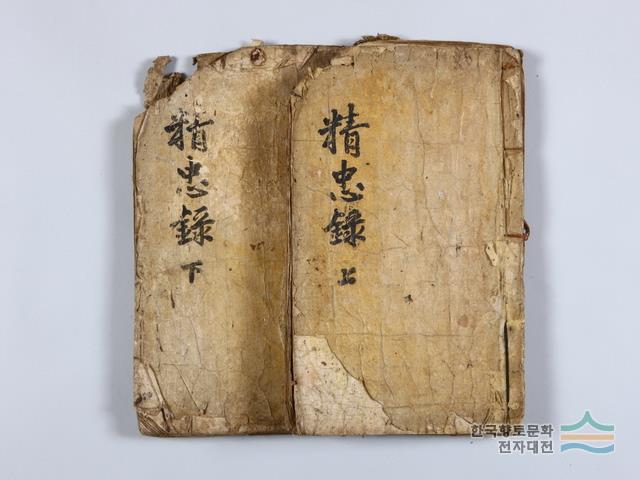 精忠錄
上
精忠錄
下
한국향토문화
전자대전